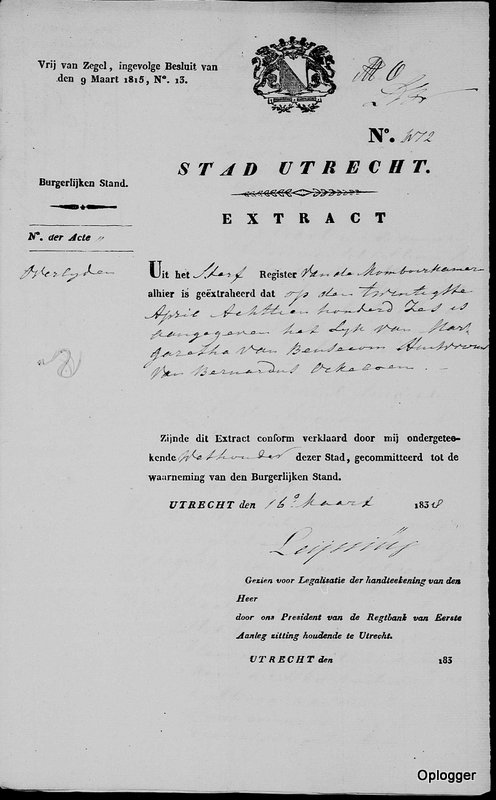 Vrij van Zegel, ingevolge Besluit van
den 9 Maart 1815, N°. 13.
N°. 472
STAD UTRECHT.
Burgerlijken Stand.
EXTRACT
N°. der Acte "
Overlyden
Uit het Sterf Register van de Momboirkamer
alhier is geëxtraheerd dat op den twintigste
April Achttien honderd Zes is
aangegeven het Lyk van Mar-
garetha van Benseoom Huisvrouw
van Bernardus Ockeloen.
Zijnde dit Extract conform verklaard door mij ondergetee-
kende Wethouder dezer Stad, gecommitteerd tot de
waarneming van den Burgerlijken Stand.
UTRECHT den 16e Maart 1838
Gezien voor Legalisatie der handteekening van den
Heer
door ons President van de Regtbank van Eerste
Aanleg zitting houdende te Utrecht.
UTRECHT den 183
Oplogger